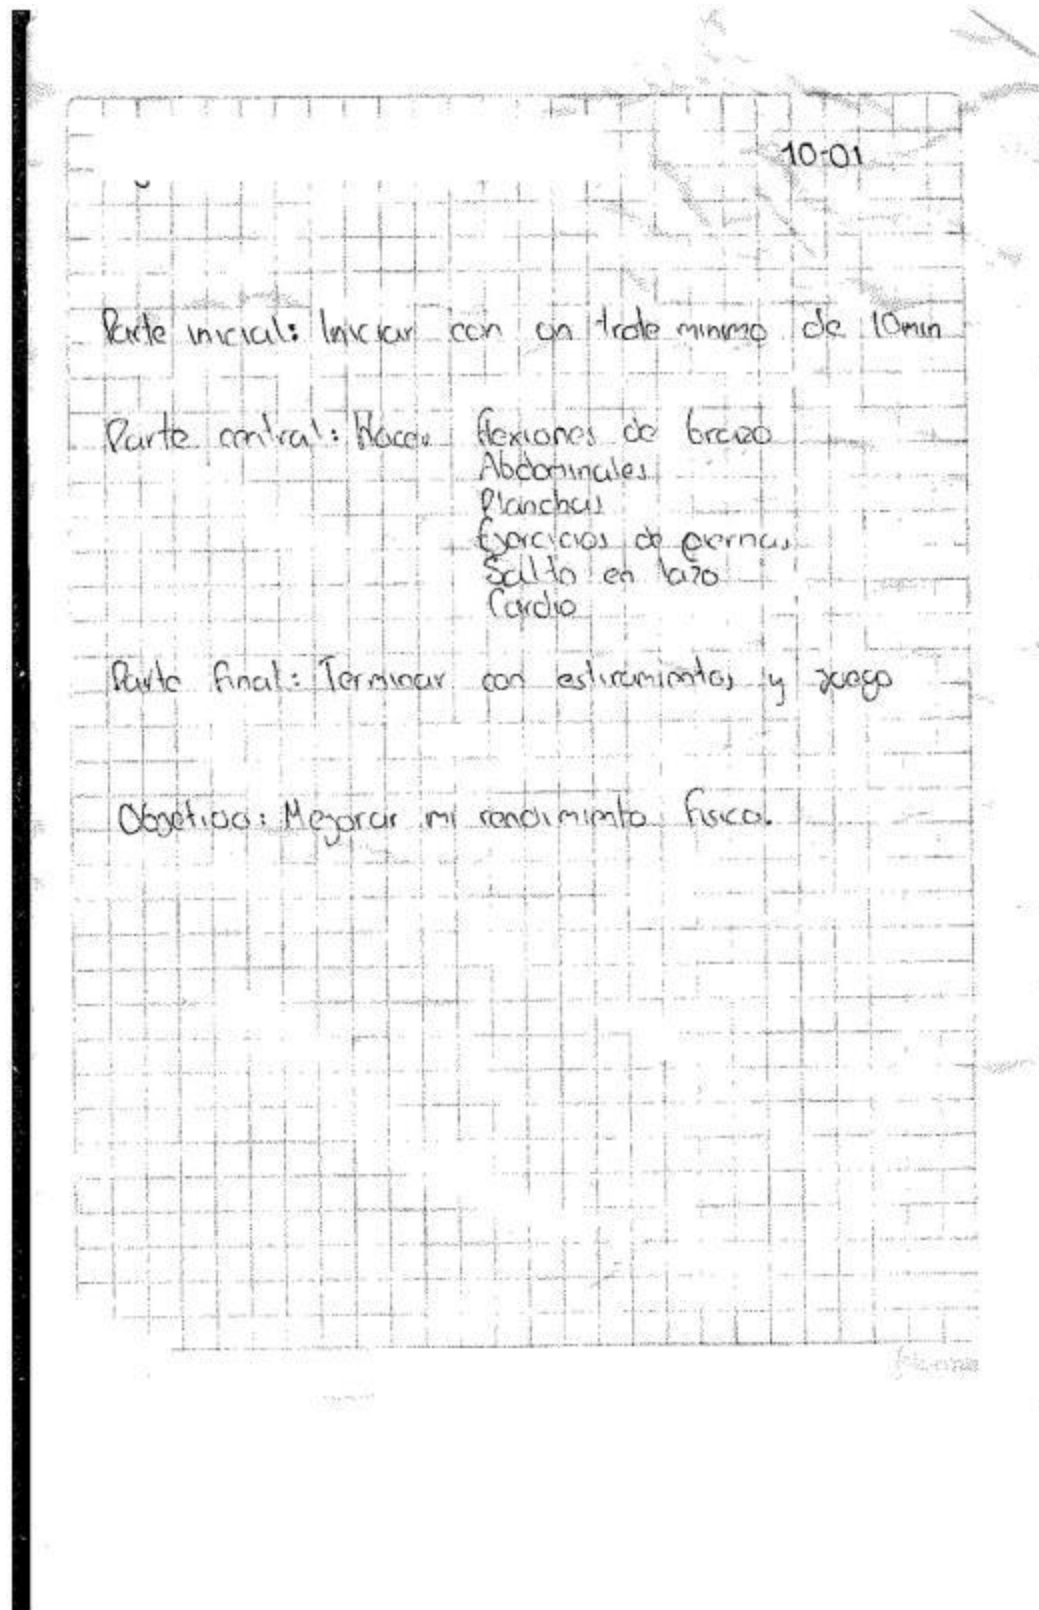 10-01
Parte inicial: Iniciar con un trote minimo de 10min
Parte central: Hacer flexiones de brazo
Abdominales
Planchas
Ejercicios de piernas
Salto en lazo
Cardio
Parte final: Terminar con estiramientos y juego
Objetivo: Mejorar mi rendimiento fisico.